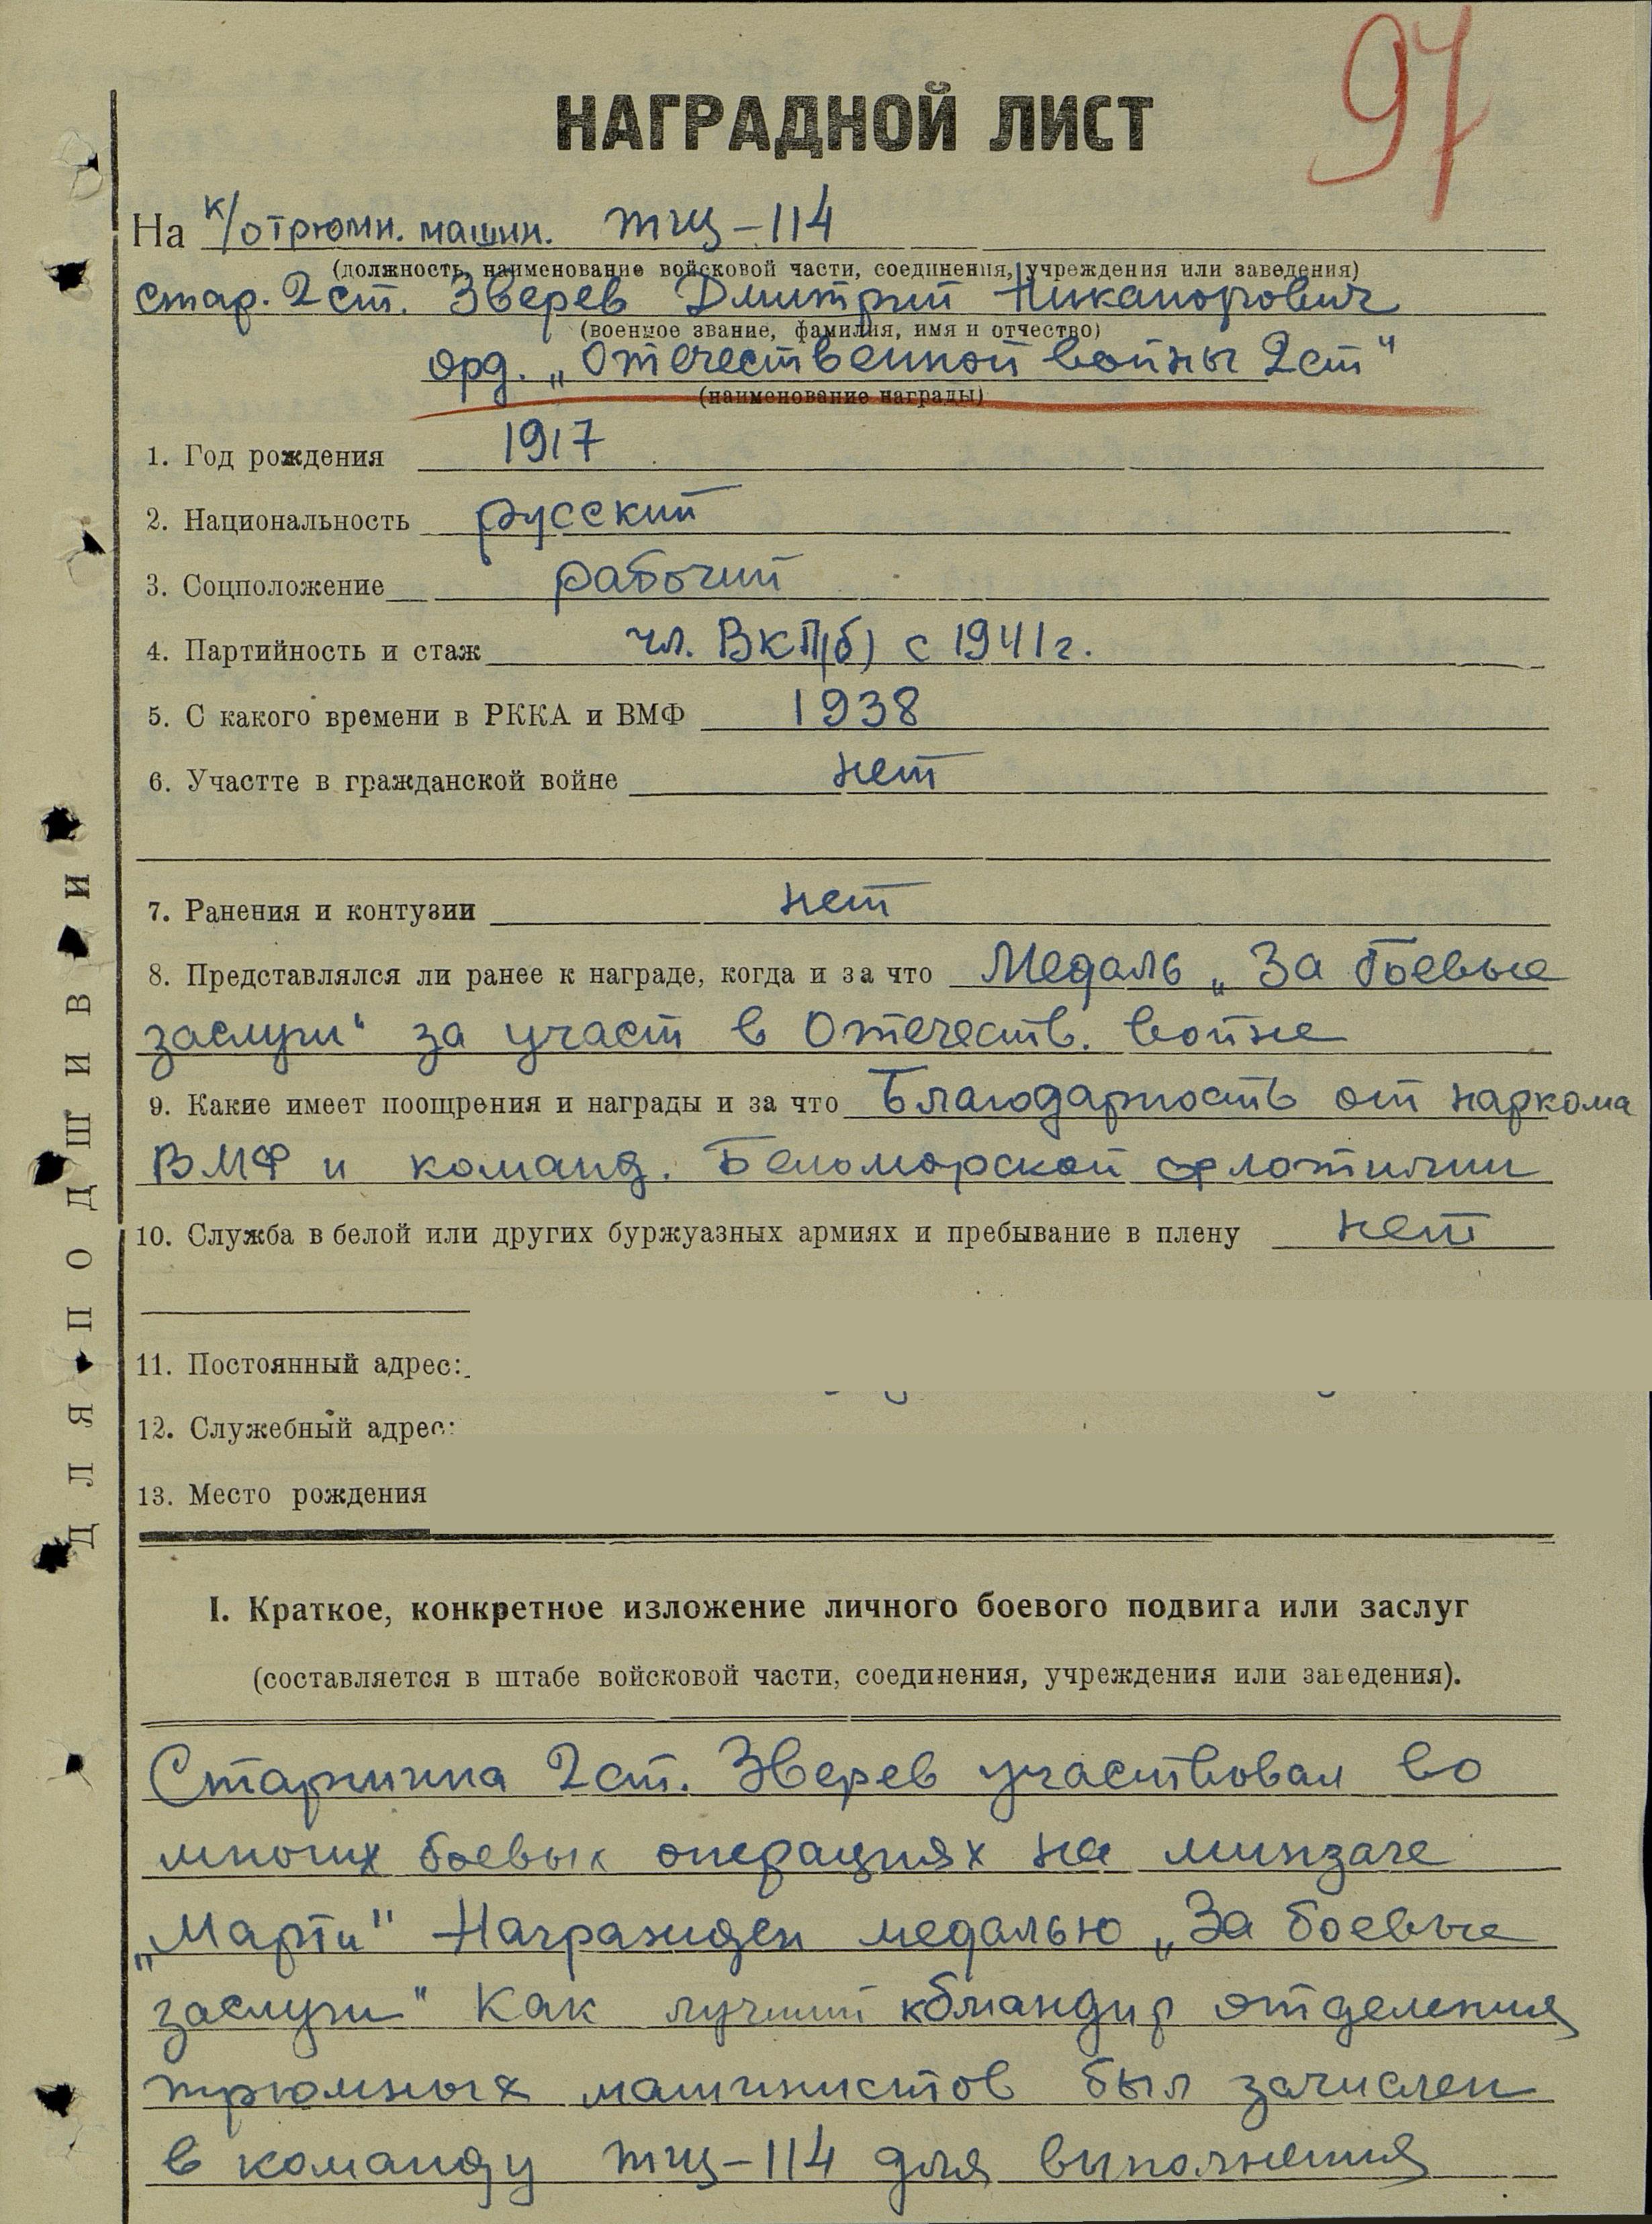 97
НАГРАДНОЙ ЛИСТ
На к/отрюмн. машин. тщ-114
(должность, наименование войсковой части, соединения, учреждения или заведения)
стар. 2 ст. Зверев Дмитрий Никанорович
(военное звание, фамилия, имя и отчество)
орд. „Отечественной войны 2 ст"
(наименование награды)
1. Год рождения 1917
2. Национальность русский
3. Соцположение рабочий
4. Партийность и стаж чл. ВКП(б) с 1941 г.
5. С какого времени в РККА и ВМФ 1938
6. Участте в гражданской войне нет
7. Ранения и контузии нет
8. Представлялся ли ранее к награде, когда и за что Медаль „За боевые
заслуги" за участ в Отечеств. войне
9. Какие имеет поощрения и награды и за что Благодарность от наркома
ВМФ и команд. Беломорской флотилии
10. Служба в белой или других буржуазных армиях и пребывание в плену нет
11. Постоянный адрес:
12. Служебный адрес:
13. Место рождения
I. Краткое, конкретное изложение личного боевого подвига или заслуг
(составляется в штабе войсковой части, соединения, учреждения или заведения).
Старшина 2 ст. Зверев участвовал во
многих боевых операциях на минзаге
„Марти" Награжден медалью „За боевые
заслуги" Как лучший командир отделения
трюмных машинистов был зачислен
в команду тщ-114 для выполнения
ДЛЯ ПОДШИВКИ